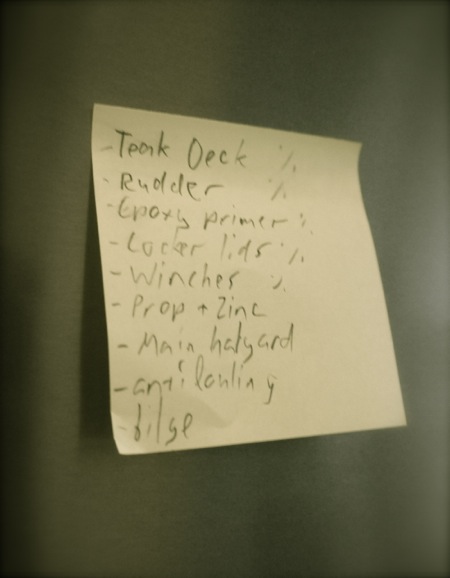 - Teak Deck ·/.
- Rudder ·/.
- Epoxy primer ·/.
- Locker lids ·/.
- Winches ·/.
- Prop + Zinc
- Main halyard
- antifouling
- bilge